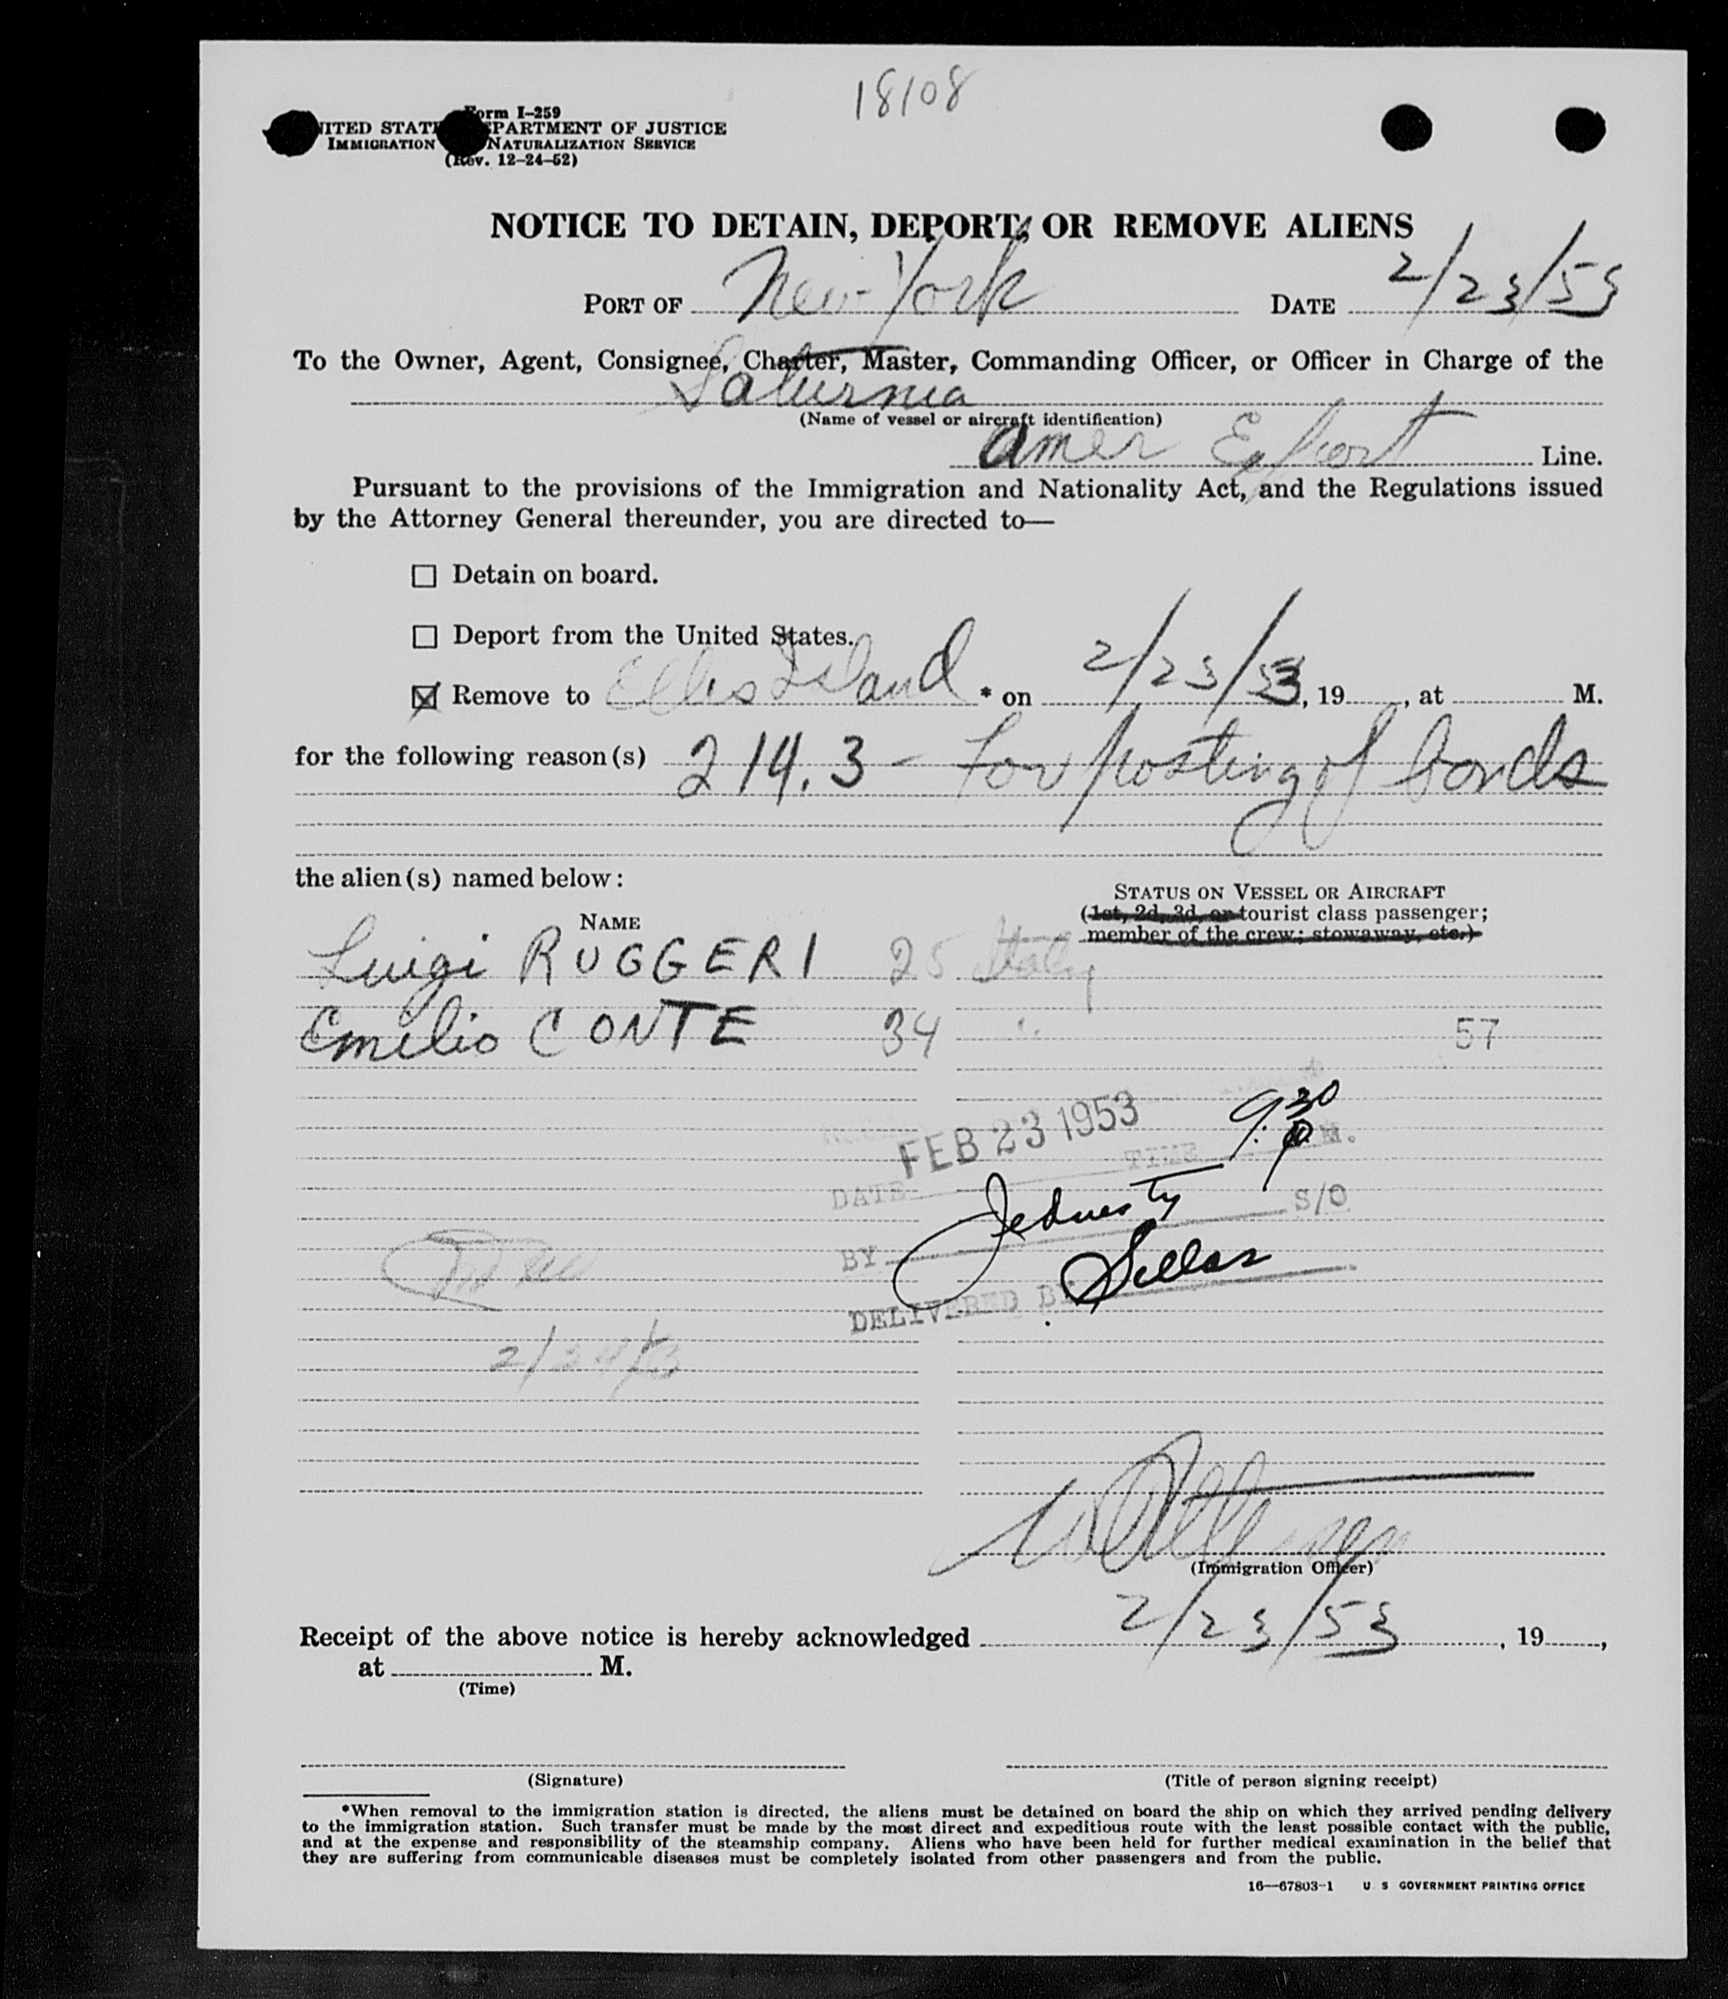 18108
Form I-259
UNITED STATES DEPARTMENT OF JUSTICE
IMMIGRATION NATURALIZATION SERVICE
(Rev. 12-24-52)
NOTICE TO DETAIN, DEPORT, OR REMOVE ALIENS
PORT OF New York DATE 2/23/53
To the Owner, Agent, Consignee, Charter, Master, Commanding Officer, or Officer in Charge of the
Saturnia
(Name of vessel or aircraft identification)
Amer Export Line.
Pursuant to the provisions of the Immigration and Nationality Act, and the Regulations issued
by the Attorney General thereunder, you are directed to—
☐ Detain on board.
☐ Deport from the United States.
☒ Remove to Ellis Island * on 2/23/53, 19 , at M.
for the following reason(s) 214.3 - For posting of bonds
the alien(s) named below:
STATUS ON VESSEL OR AIRCRAFT
NAME
(1st, 2d, 3d, or tourist class passenger;
member of the crew; stowaway, etc.)
Luigi RUGGERI 25 Italy
Emilio CONTE 34 " 57
FEB 23 1953 9:30 P M.
DATE TIME
BY S/O
DELIVERED BY
(Immigration Officer)
Receipt of the above notice is hereby acknowledged 2/23/53, 19 ,
at M.
(Time)
(Signature) (Title of person signing receipt)
*When removal to the immigration station is directed, the aliens must be detained on board the ship on which they arrived pending delivery
to the immigration station. Such transfer must be made by the most direct and expeditious route with the least possible contact with the public,
and at the expense and responsibility of the steamship company. Aliens who have been held for further medical examination in the belief that
they are suffering from communicable diseases must be completely isolated from other passengers and from the public.
16—67803-1 U S GOVERNMENT PRINTING OFFICE